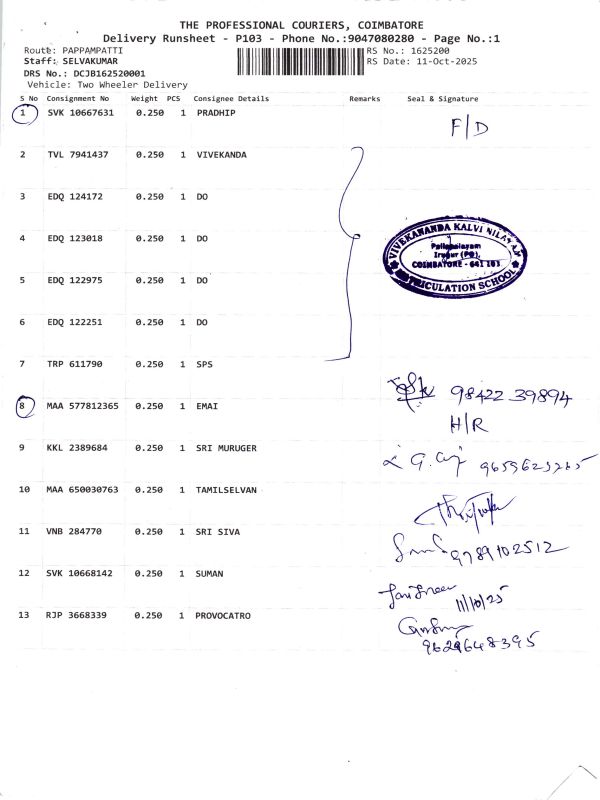 THE PROFESSIONAL COURIERS, COIMBATORE
Delivery Runsheet - P103 - Phone No.:9047080280 - Page No.:1
Route: PAPPAMPATTI
Staff: SELVAKUMAR
DRS No.: DCJB162520001
Vehicle: Two Wheeler Delivery
RS No.: 1625200
RS Date: 11-Oct-2025
S No Consignment No Weight PCS Consignee Details Remarks Seal & Signature
1 SVK 10667631 0.250 1 PRADHIP F/D
2 TVL 7941437 0.250 1 VIVEKANDA
3 EDQ 124172 0.250 1 DO
4 EDQ 123018 0.250 1 DO
5 EDQ 122975 0.250 1 DO
6 EDQ 122251 0.250 1 DO
VIVEKANANDA KALVI NILAYAM
Pallapalayam
Irugur (PO),
COIMBATORE - 641 103
MATRICULATION SCHOOL
7 TRP 611790 0.250 1 SPS 98422 39894
8 MAA 577812365 0.250 1 EMAI H/R
9 KKL 2389684 0.250 1 SRI MURUGER
10 MAA 650030763 0.250 1 TAMILSELVAN
11 VNB 284770 0.250 1 SRI SIVA 9789102512
12 SVK 10668142 0.250 1 SUMAN 11/10/25
13 RJP 3668339 0.250 1 PROVOCATRO 9629648395